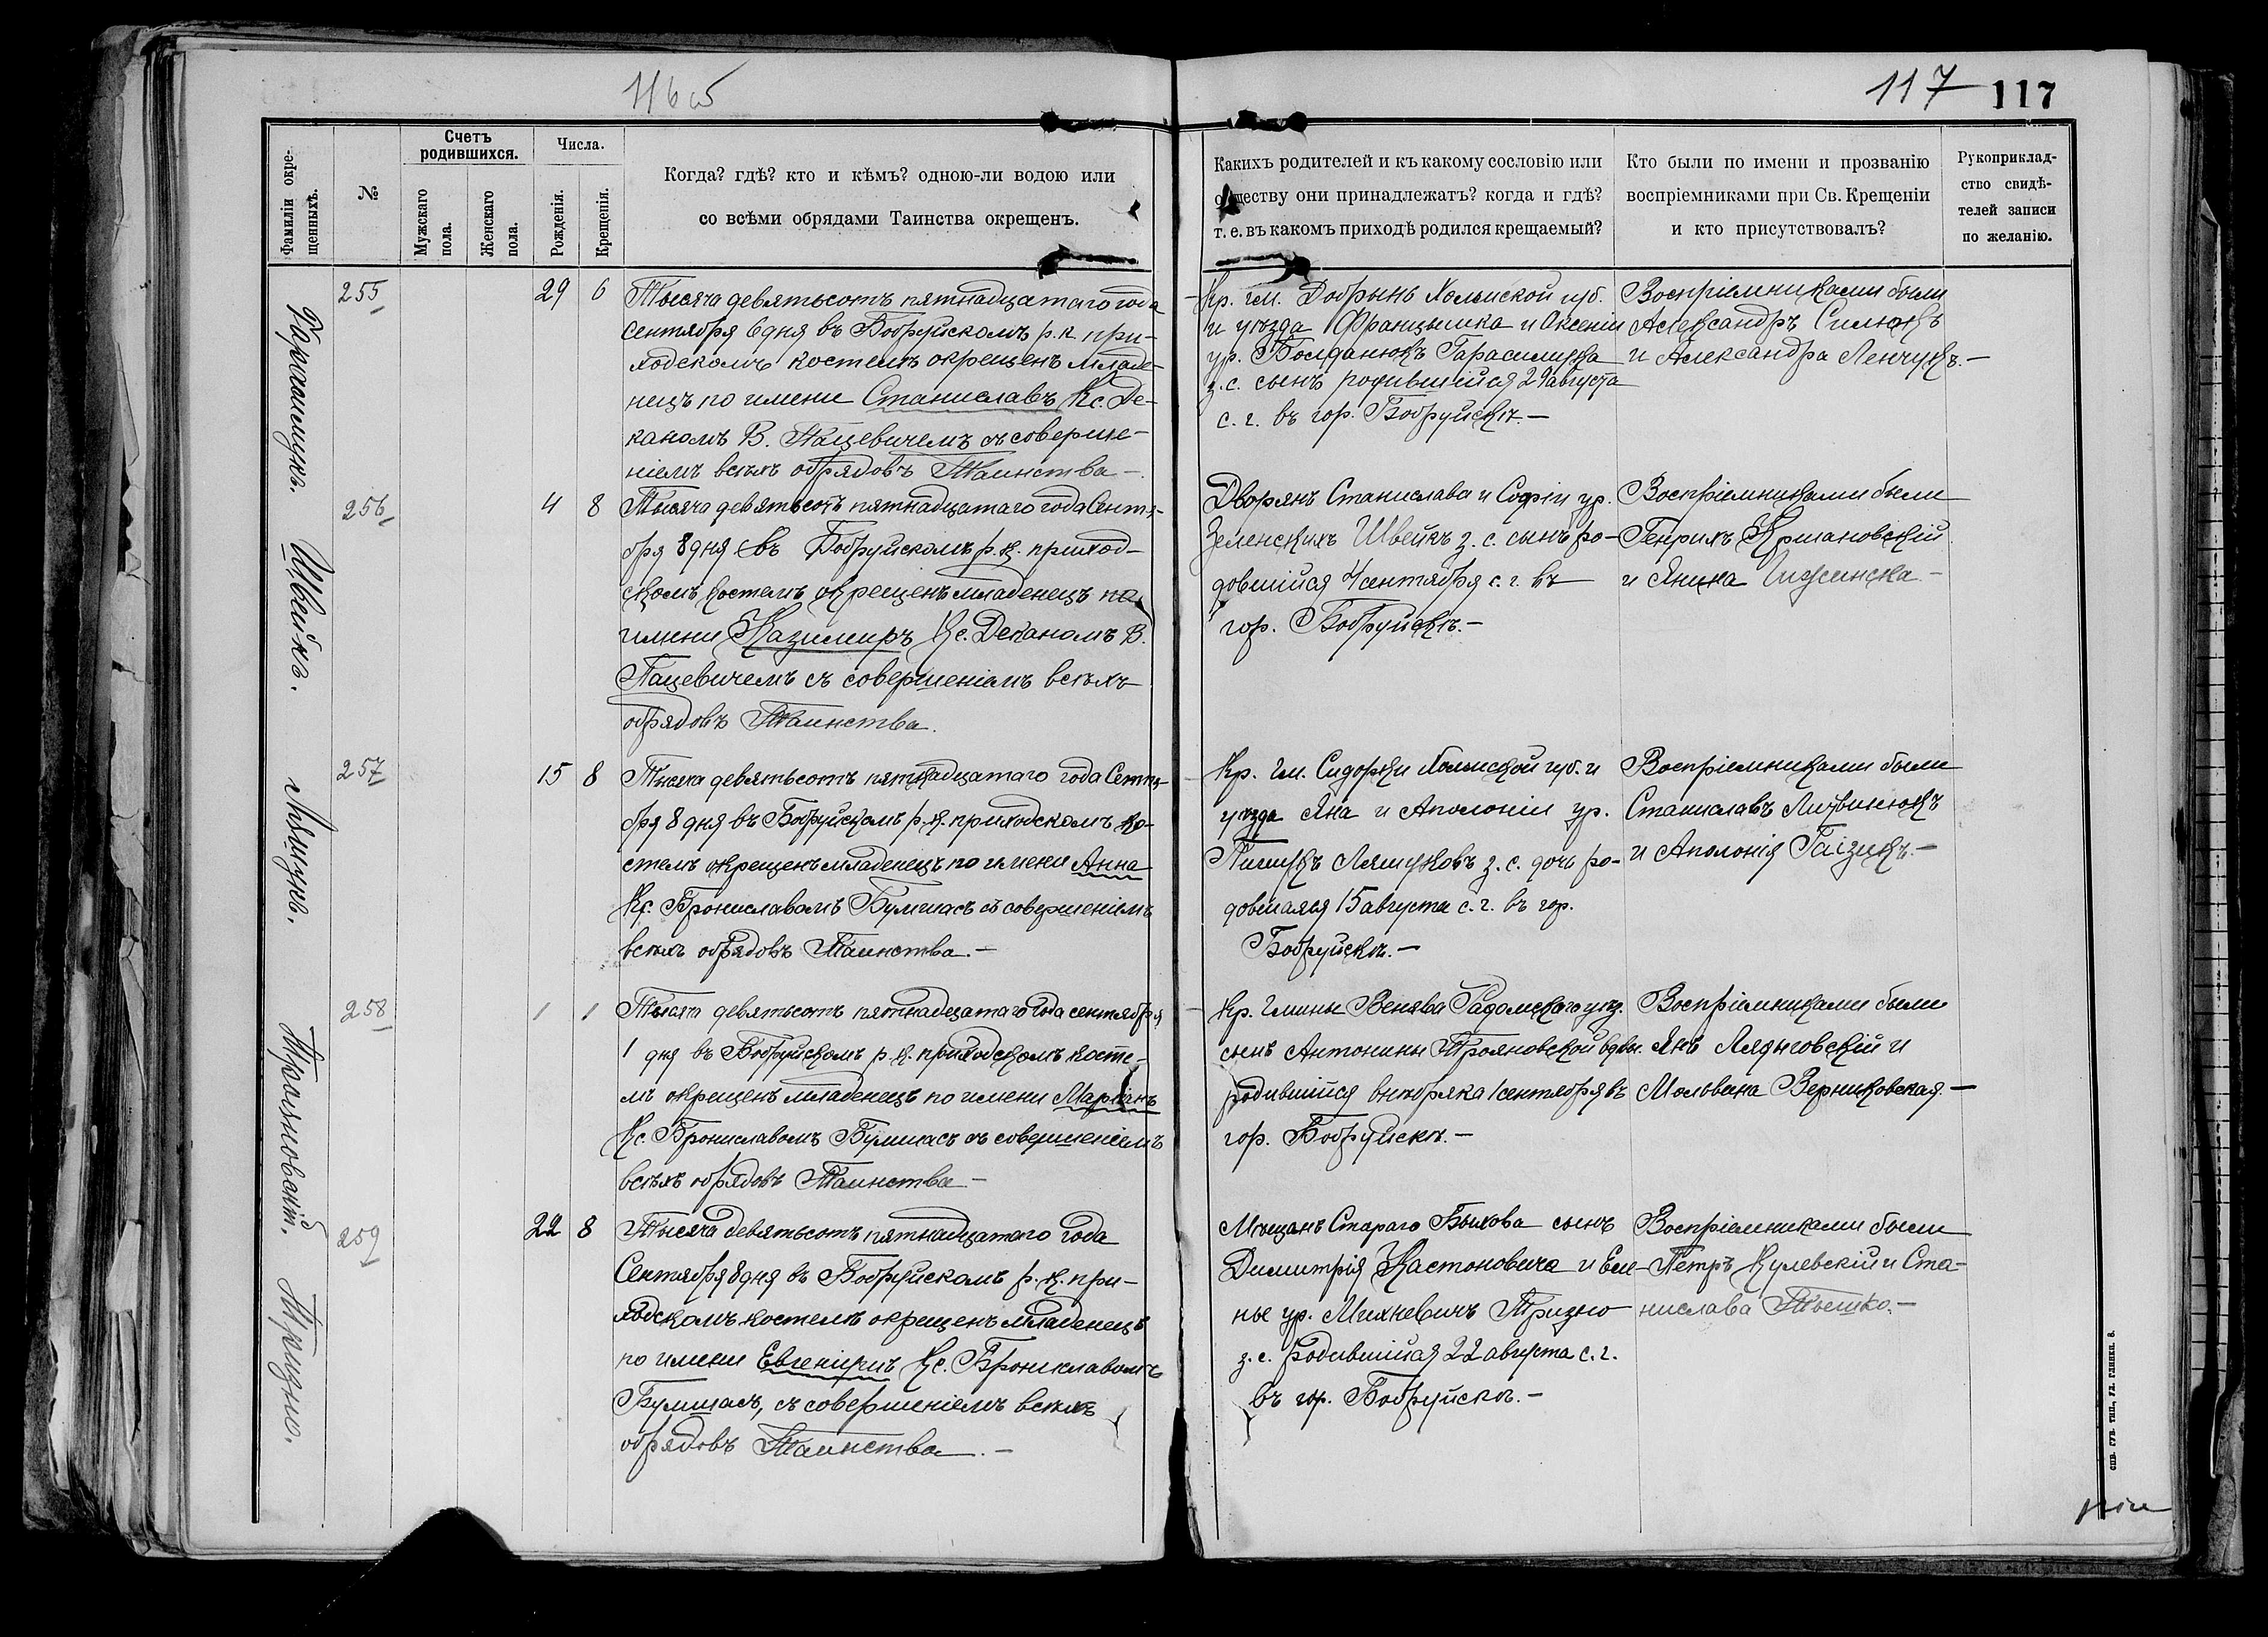 116 об
117
117
Фамиліи окре-
щенныхъ.
№
Счетъ
родившихся.
Мужскаго
пола.
Женскаго
пола.
Числа.
Рожденія.
Крещенія.
Когда? гдѣ? кто и кѣмъ? одною-ли водою или
со всѣми обрядами Таинства окрещенъ.
Какихъ родителей и къ какому сословію или
обществу они принадлежатъ? когда и гдѣ?
т. е. въ какомъ приходѣ родился крещаемый?
Кто были по имени и прозванію
воспріемниками при Св. Крещеніи
и кто присутствовалъ?
Рукоприклад-
ство свидѣ-
телей записи
по желанію.
Гарасимукъ.
255
29 6
Тысяча девятьсотъ пятнадцатаго года
сентября 6 дня въ Бобруйскомъ р. к. при-
ходскомъ костелѣ окрещенъ младе-
нецъ по имени Станиславъ Кс. Де-
каномъ В. Пацевичемъ съ соверше-
ніемъ всѣхъ обрядовъ Таинства —
Кр. гм. Добрынь Холмской губ.
и уѣзда Францишка и Аксеніи
ур. Богданюкъ Гарасимука
з. с. сынъ родившійся 29 августа
с. г. въ гор. Бобруйскѣ. —
Воспріемниками были
Александръ Силюкъ
и Александра Ленчукъ. —
Швейкъ.
256
4 8
Тысяча девятьсотъ пятнадцатаго года Сентя-
бря 8 дня въ Бобруйскомъ р. к. приход-
скомъ костелѣ окрещенъ младенецъ по
имени Казимиръ Кс. Деканомъ В.
Пацевичемъ съ совершеніемъ всѣхъ
обрядовъ Таинства.
Дворянъ Станислава и Софіи ур.
Зеленскихъ Швейкъ з. с. сынъ ро-
дившійся 4 сентября с. г. въ
гор. Бобруйскѣ. —
Воспріемниками были
Генрихъ Кржановскій
и Янина —
Ляшукъ.
257
15 8
Тысяча девятьсотъ пятнадцатаго года Сентя-
бря 8 дня въ Бобруйскомъ р. к. приходскомъ ко-
стелѣ окрещенъ младенецъ по имени Анна
Кс. Брониславомъ Бумшасъ съ совершеніемъ
всѣхъ обрядовъ Таинства. —
Кр. гм. Сидорки Холмской губ. и
уѣзда Яна и Аполоніи ур.
Ляшуковъ з. с. дочь ро-
дившаяся 15 августа с. г. въ гор.
Бобруйскѣ. —
Воспріемниками были
Станиславъ Литвинюкъ
и Аполонія —
Трояновскій.
258
1 1
Тысяча девятьсотъ пятнадцатаго года сентября
1 дня въ Бобруйскомъ р. к. приходскомъ косте-
лѣ окрещенъ младенецъ по имени Марьянъ
Кс. Брониславомъ Бумшасъ съ совершеніемъ
всѣхъ обрядовъ Таинства —
Кр. Гмины Венява Радомскаго уѣз.
сынъ Антонины Трояновской вдвы.
родившійся внѣбрака 1 сентября въ
гор. Бобруйскѣ. —
Воспріемниками были
Янъ Лядыговскій и
Мальвина Верниковская. —
Тризно.
259
22 8
Тысяча девятьсотъ пятнадцатаго года
Сентября 8 дня въ Бобруйскомъ р. к. при-
ходскомъ костелѣ окрещенъ младенецъ
по имени Евгеніушъ Кс. Брониславомъ
Бумшасъ, съ совершеніемъ всѣхъ
обрядовъ Таинства. —
Мѣщанъ Стараго Быхова сынъ
Димитрія Кастоновича и Еле-
ны ур. Михневичъ Тризно
з. с. родившійся 22 августа с. г.
въ гор. Бобруйскѣ. —
Воспріемниками были
Петръ Кулевскій и Ста-
нислава Тышко. —
СПБ. ГУБ. ТИП., УЛ. ГЛИНКИ. 8.